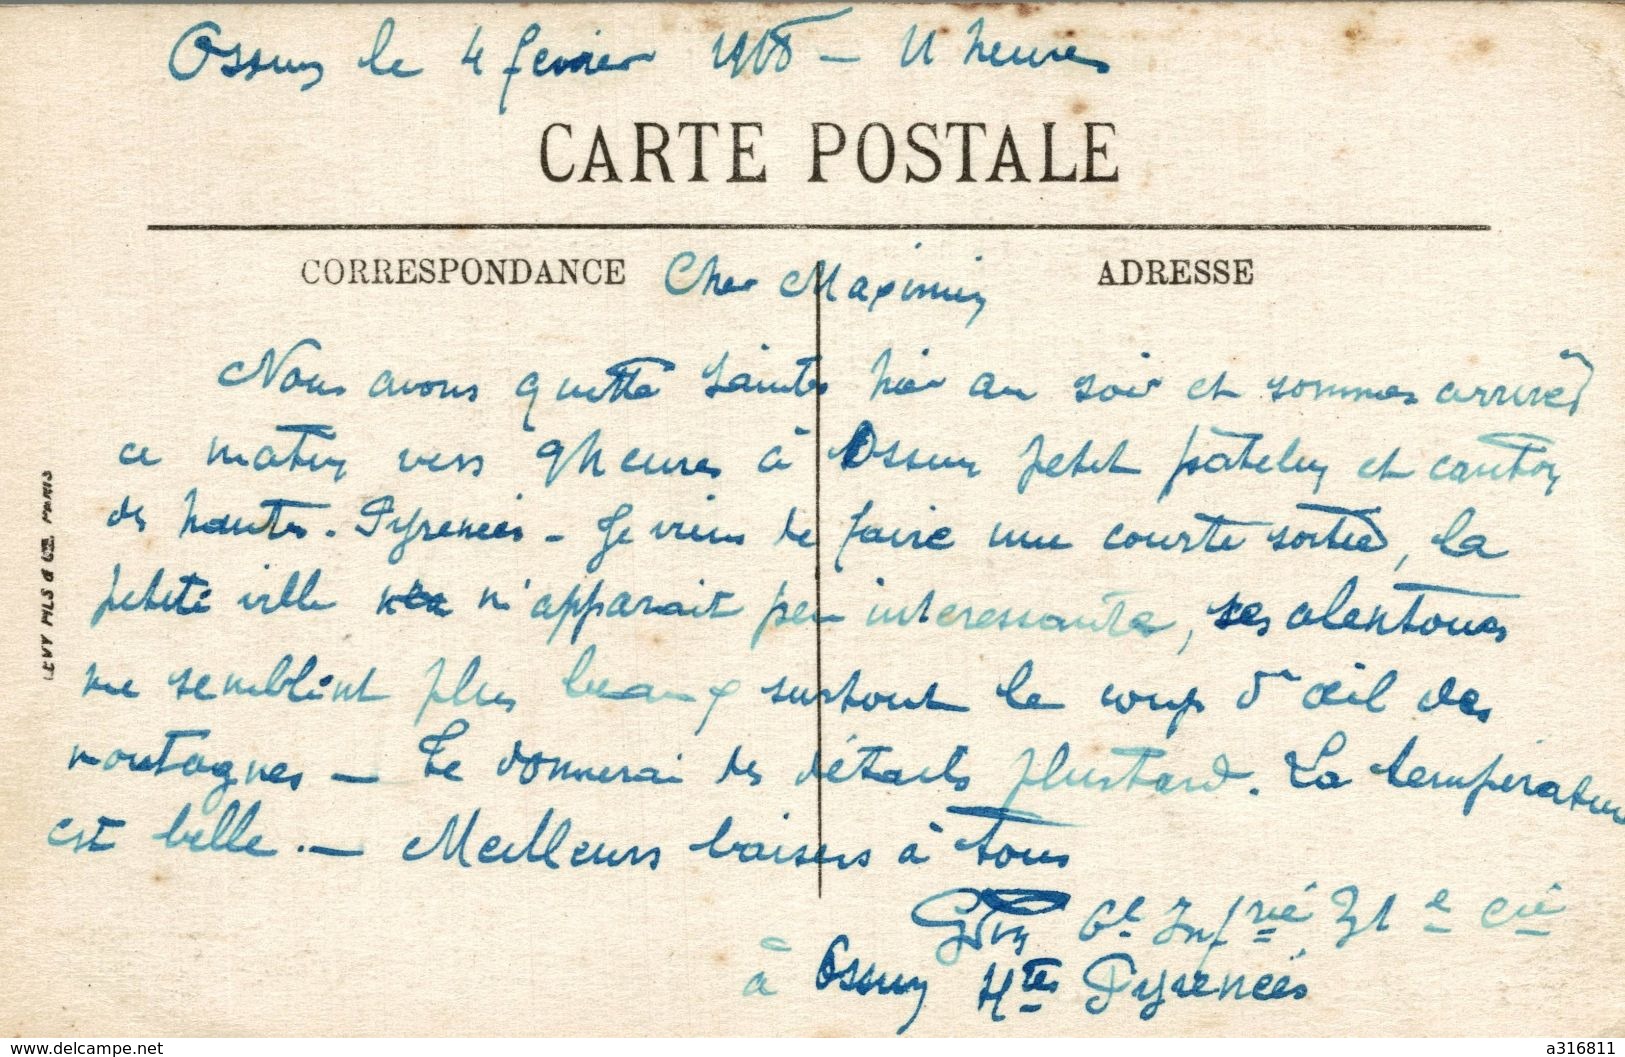 Ossun le 4 fevrier 1918 – 11 heures
CARTE POSTALE
CORRESPONDANCE
ADRESSE
Cher Maximin
Nous avons quitté Saintes hier au soir et sommes arrivés
ce matin vers 9 heures à Ossun petit patelin et canton
des hautes-Pyrenées – Je viens de faire une courte sortie, la
petite ville m'apparait peu interessante, ses alentours
me semblent plus beaux surtout le coup d'œil des
montagnes – Te donnerai des détails plustard. La température
est belle. – Meilleurs baisers à tous
6e Infrie 31e Cie
à Ossun Htes Pyrenées
LEVY FILS & Cie PARIS
www.delcampe.net
a316811